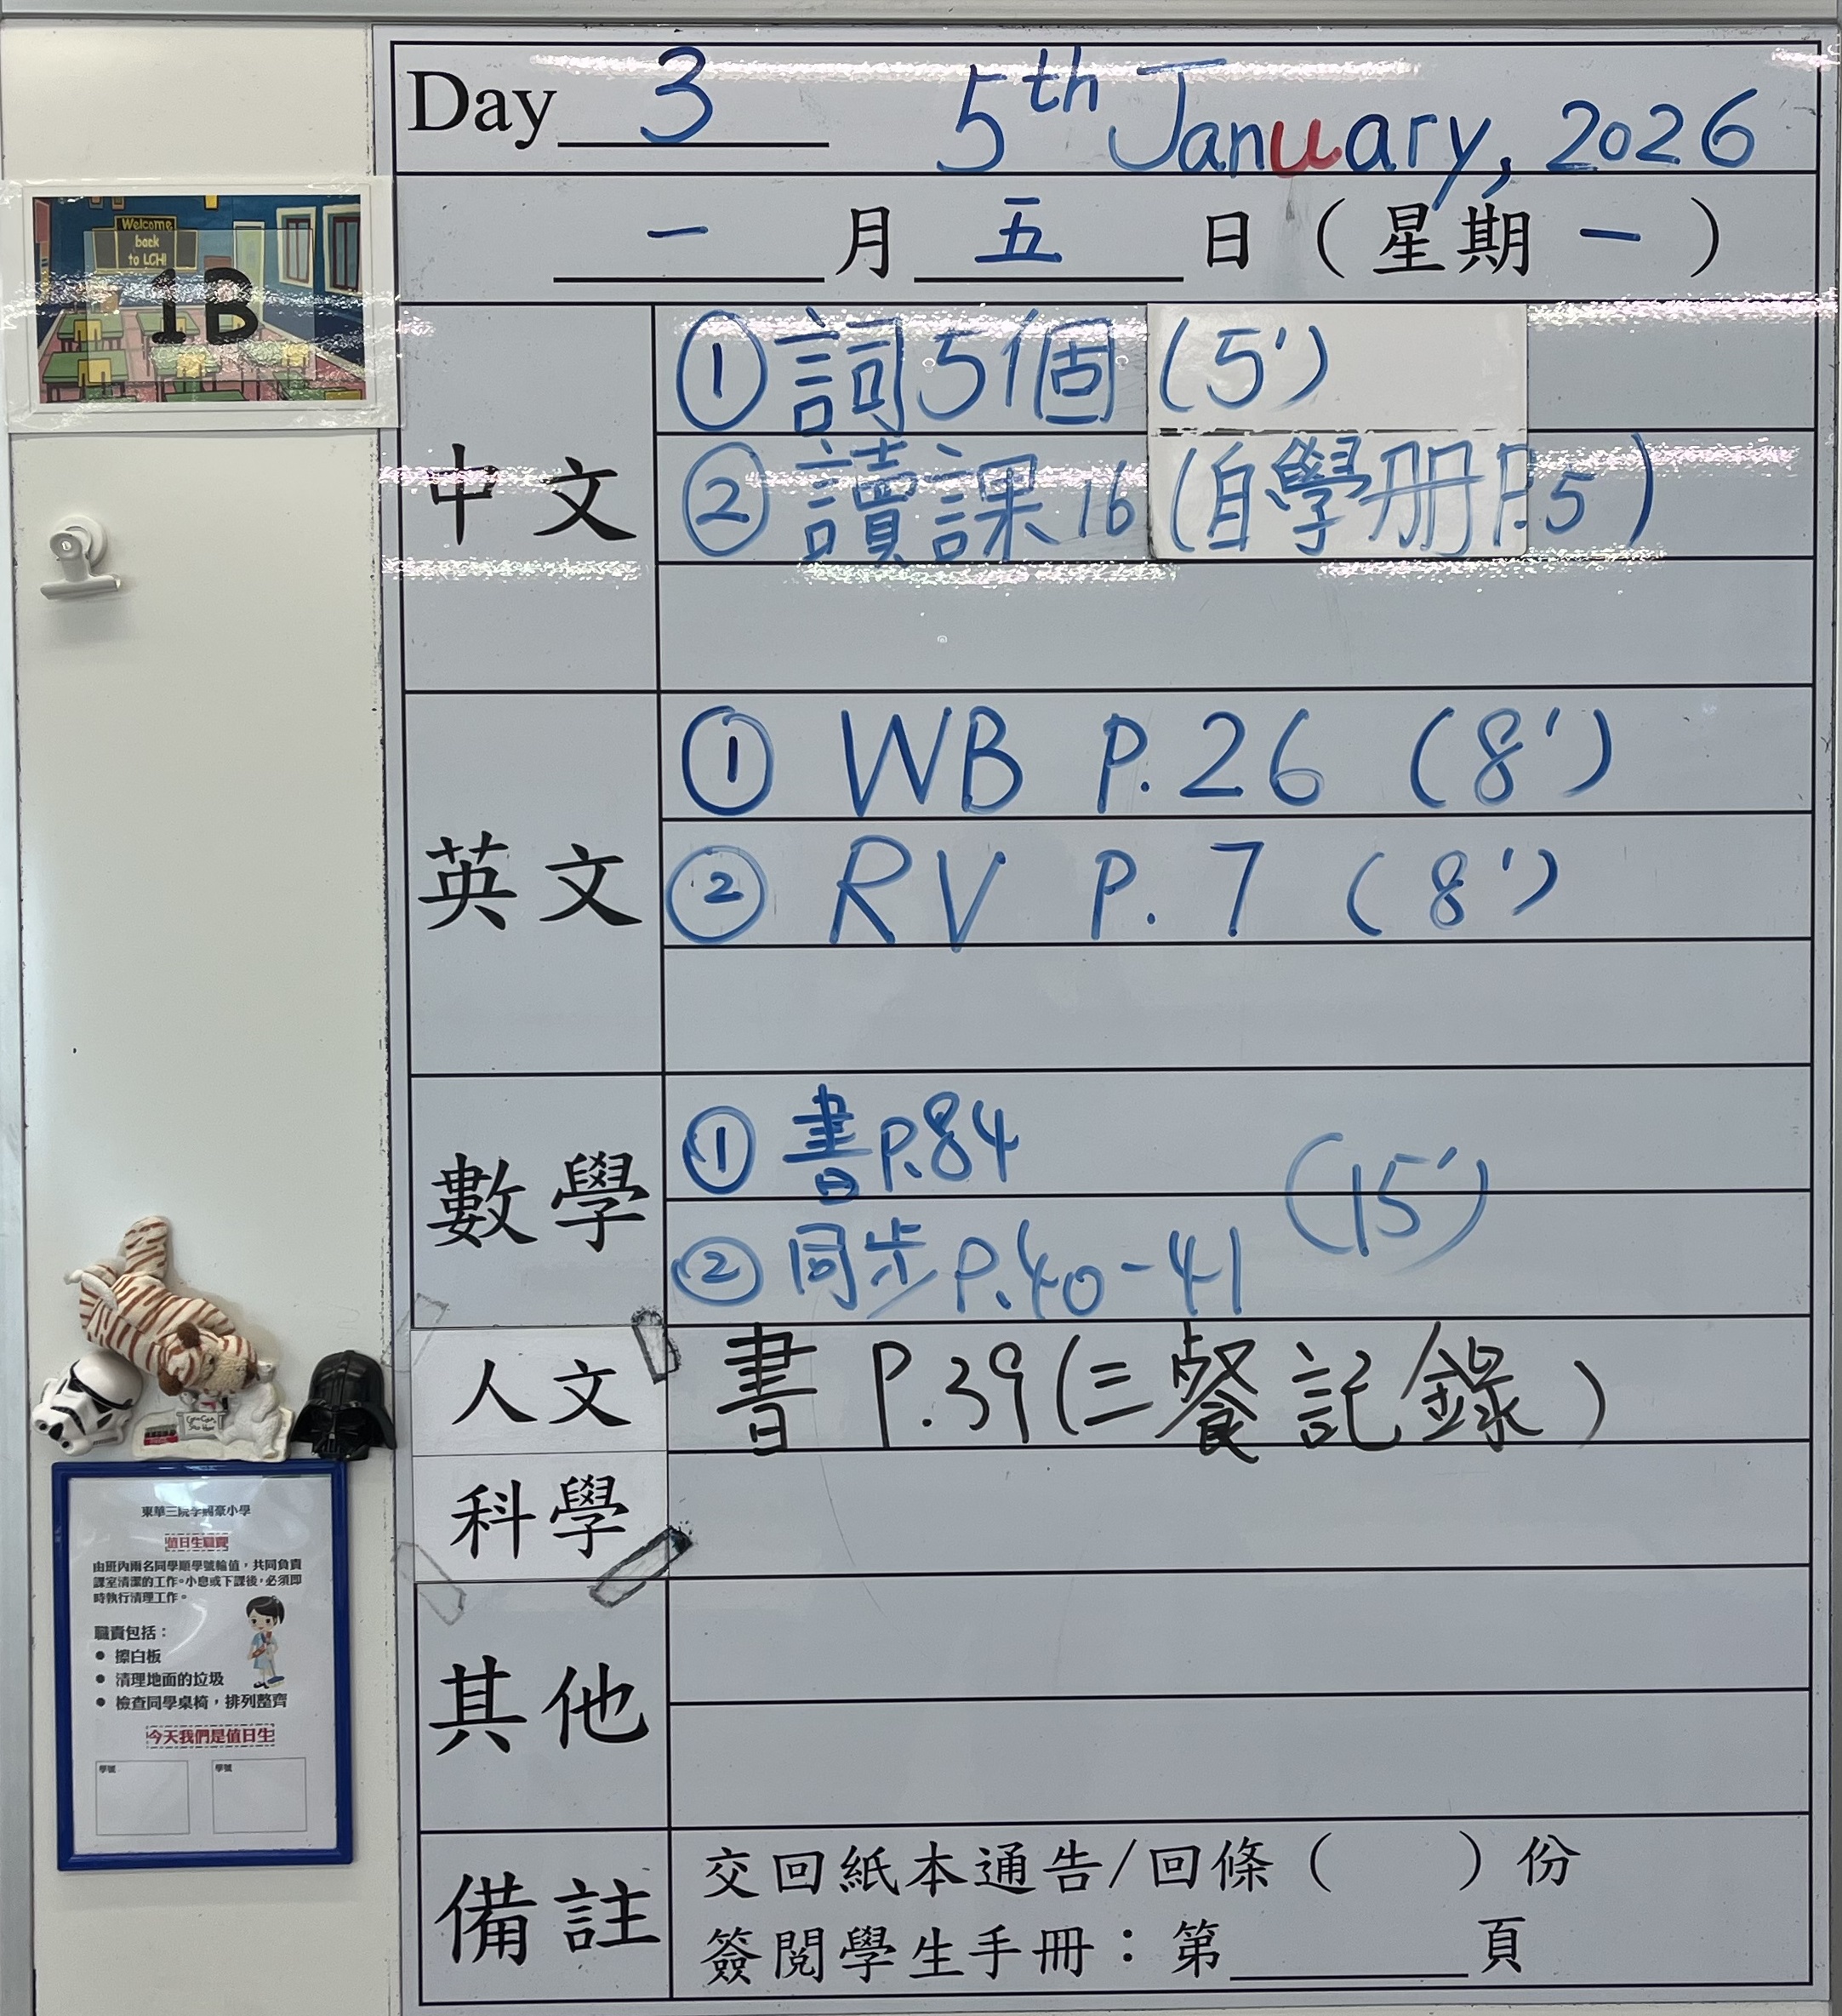 Day 3 5th January, 2026
一 月 五 日 ( 星期 一 )
Welcome
back
to LCH!
1B
中文
① 詞51個 (5')
② 讀課16 (自學册P.5)
英文
① WB P.26 (8')
② RV P.7 (8')
數學
① 書P.84
② 同步P.40-41
(15')
人文
書 P.39(三餐記錄)
科學
其他
備註
交回紙本通告/回條 ( ) 份
簽閱學生手冊：第______頁
東華三院李賜豪小學
值日生職責
由班內兩名同學順學號輪值，共同負責
課室清潔的工作。小息或下課後，必須即
時執行清理工作。
職責包括：
● 擦白板
● 清理地面的垃圾
● 檢查同學桌椅，排列整齊
今天我們是值日生
學號 學號